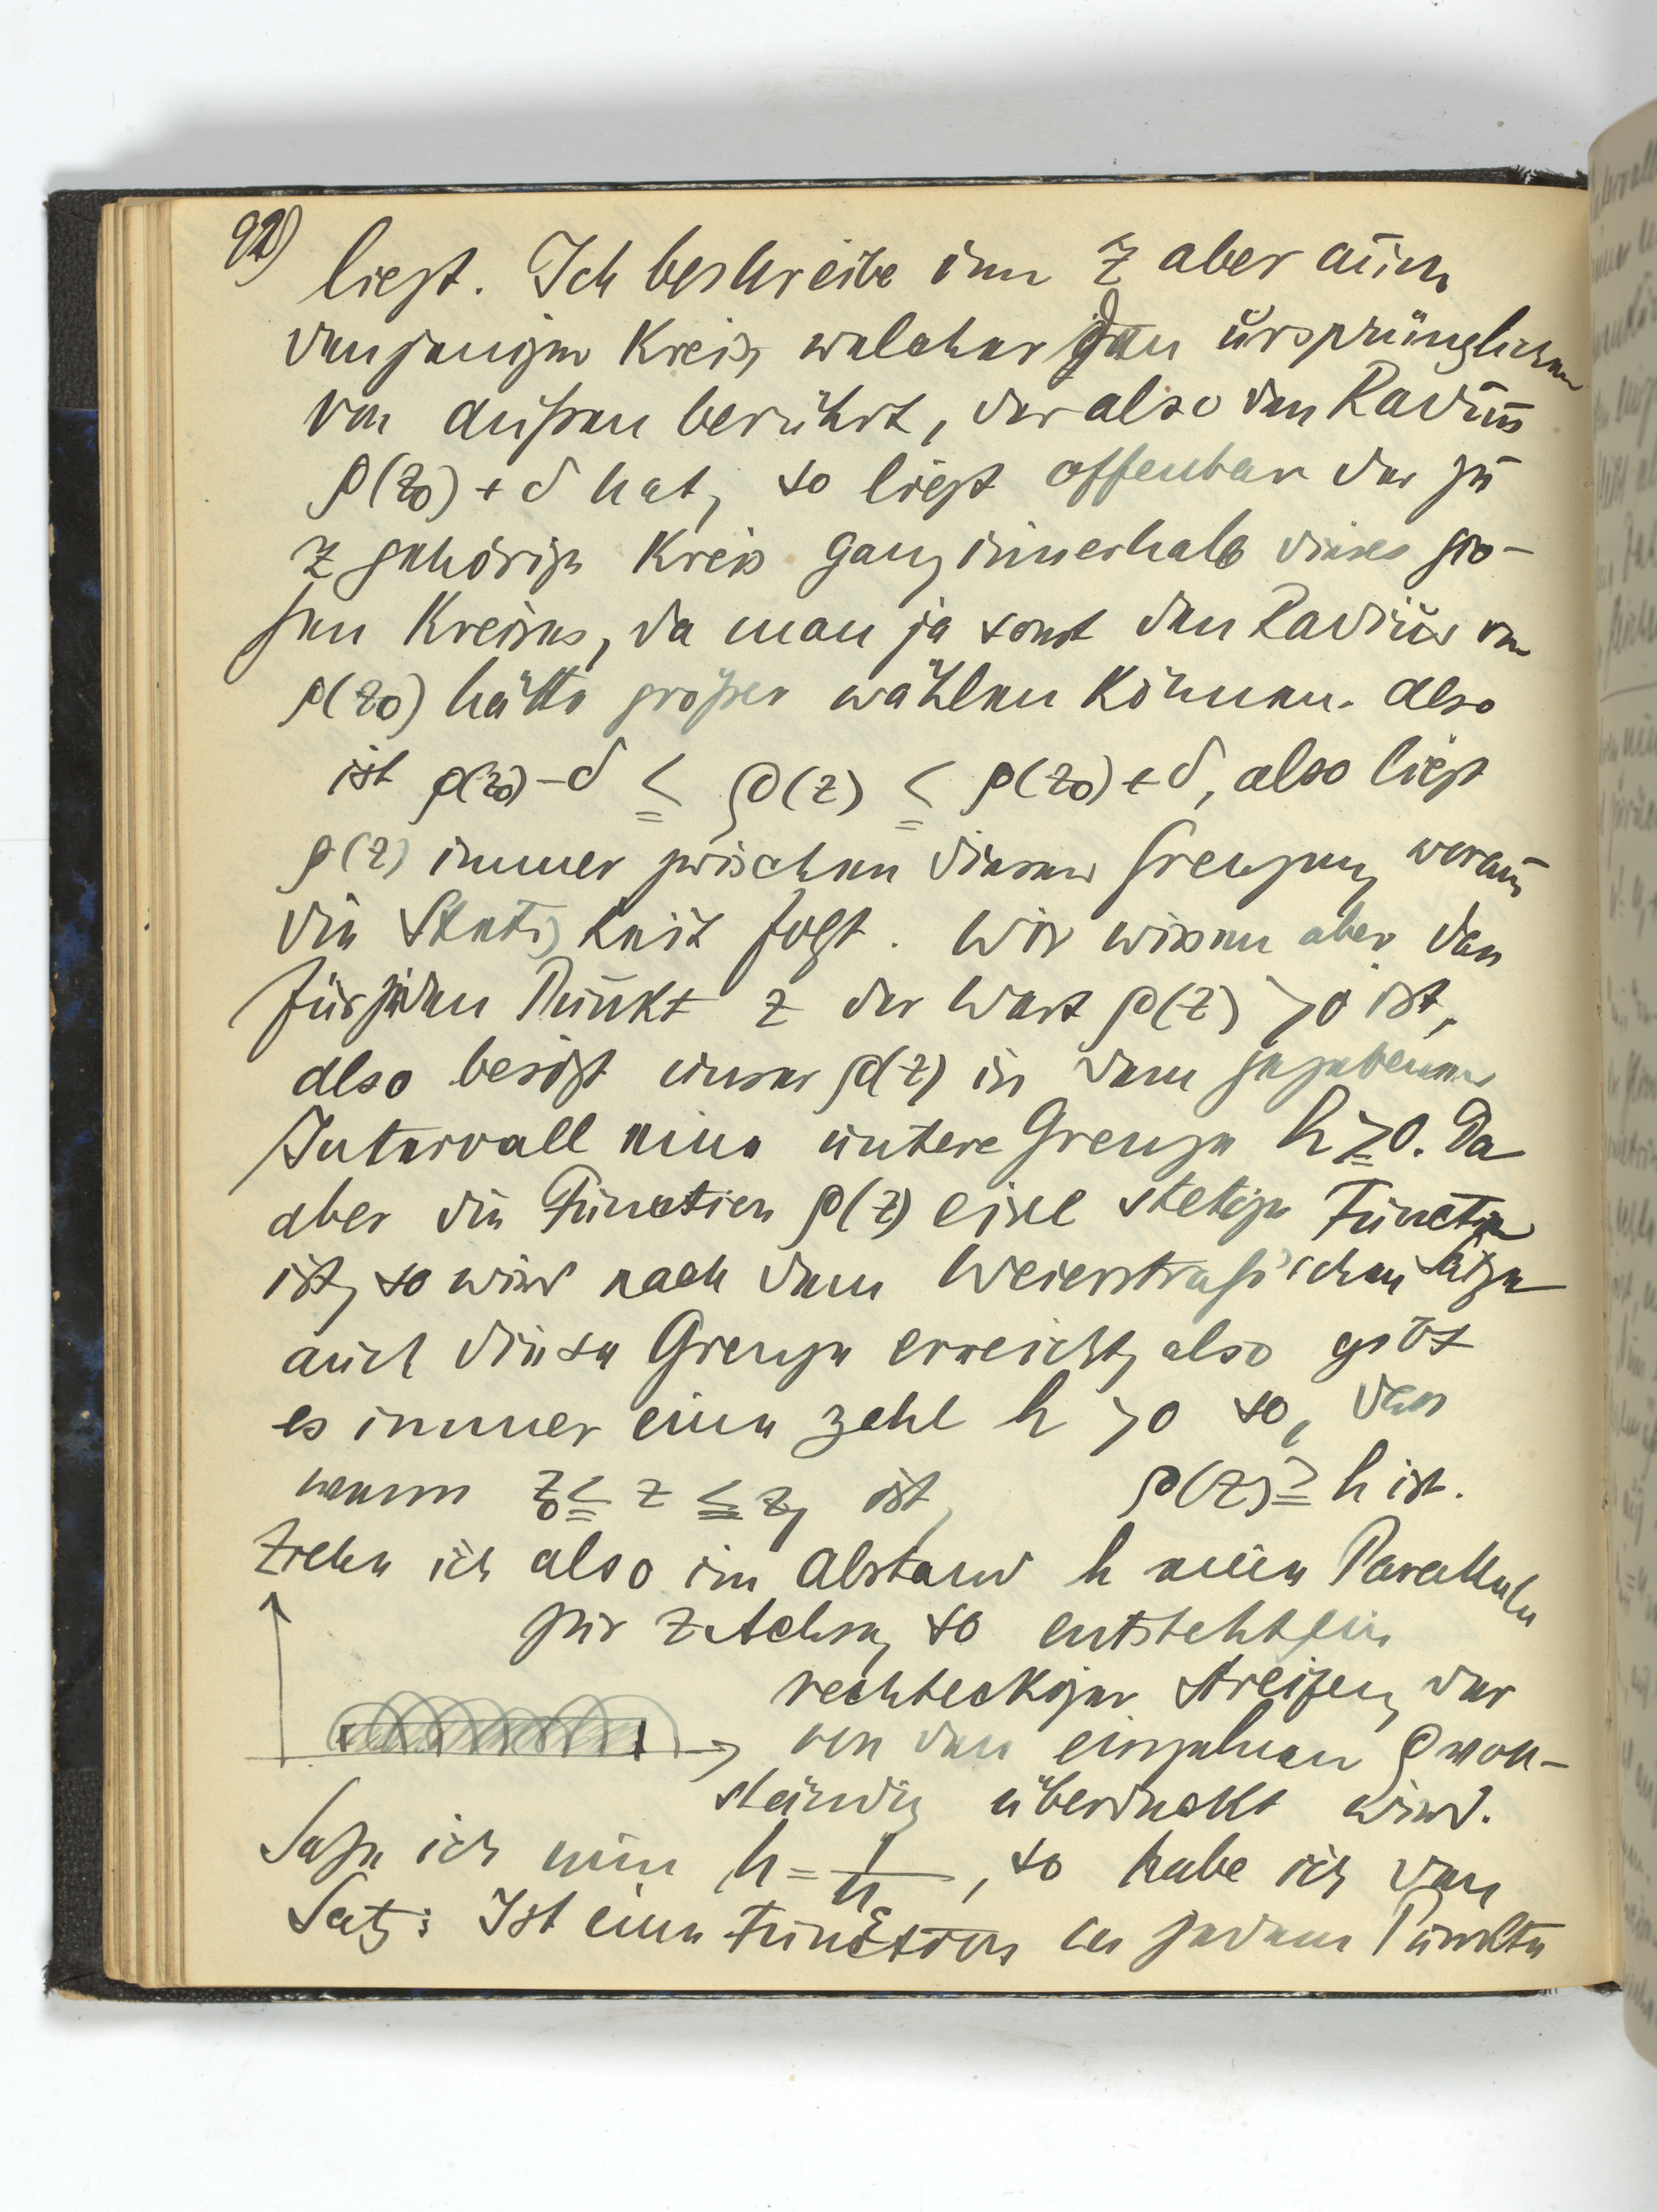 92)
liegt. Ich beschreibe um z aber auch
denjenigen Kreis, welcher den ursprünglichen
von außen berührt, der also den Radius
ρ(z₀) + δ hat, so liegt offenbar der zu
z gehörige Kreis ganz innerhalb dieses gro-
ßen Kreises, da man ja sonst den Radius von
ρ(z₀) hätte größer wählen können. Also
ist ρ(z₀) - δ ≦ ρ(z) ≦ ρ(z₀) + δ, also liegt
ρ(z) immer zwischen diesen Grenzen, woraus
die Stetigkeit folgt. Wir wissen aber dass
für jeden Punkt z der Wert ρ(z) > 0 ist,
also besitzt unser ρ(z) in dem gegebenen
Intervall eine untere Grenze h ≧ 0. Da
aber die Function ρ(z) eine stetige Function
ist, so wird nach dem Weierstraß'schen Satze
auch diese Grenze erreicht, also gibt
es immer eine Zahl h > 0 so, dass
wenn z₀ ≦ z ≦ z₁ ist, ρ(z) ≧ h ist.
Ziehe ich also im Abstand h eine Parallele
zur z Achse, so entsteht ein
rechteckiger Streifen, der
von den einzelnen ρ voll-
ständig überdeckt wird.
Setze ich nun h = 1/n, so habe ich den
Satz: Ist eine Function in jedem Punkte